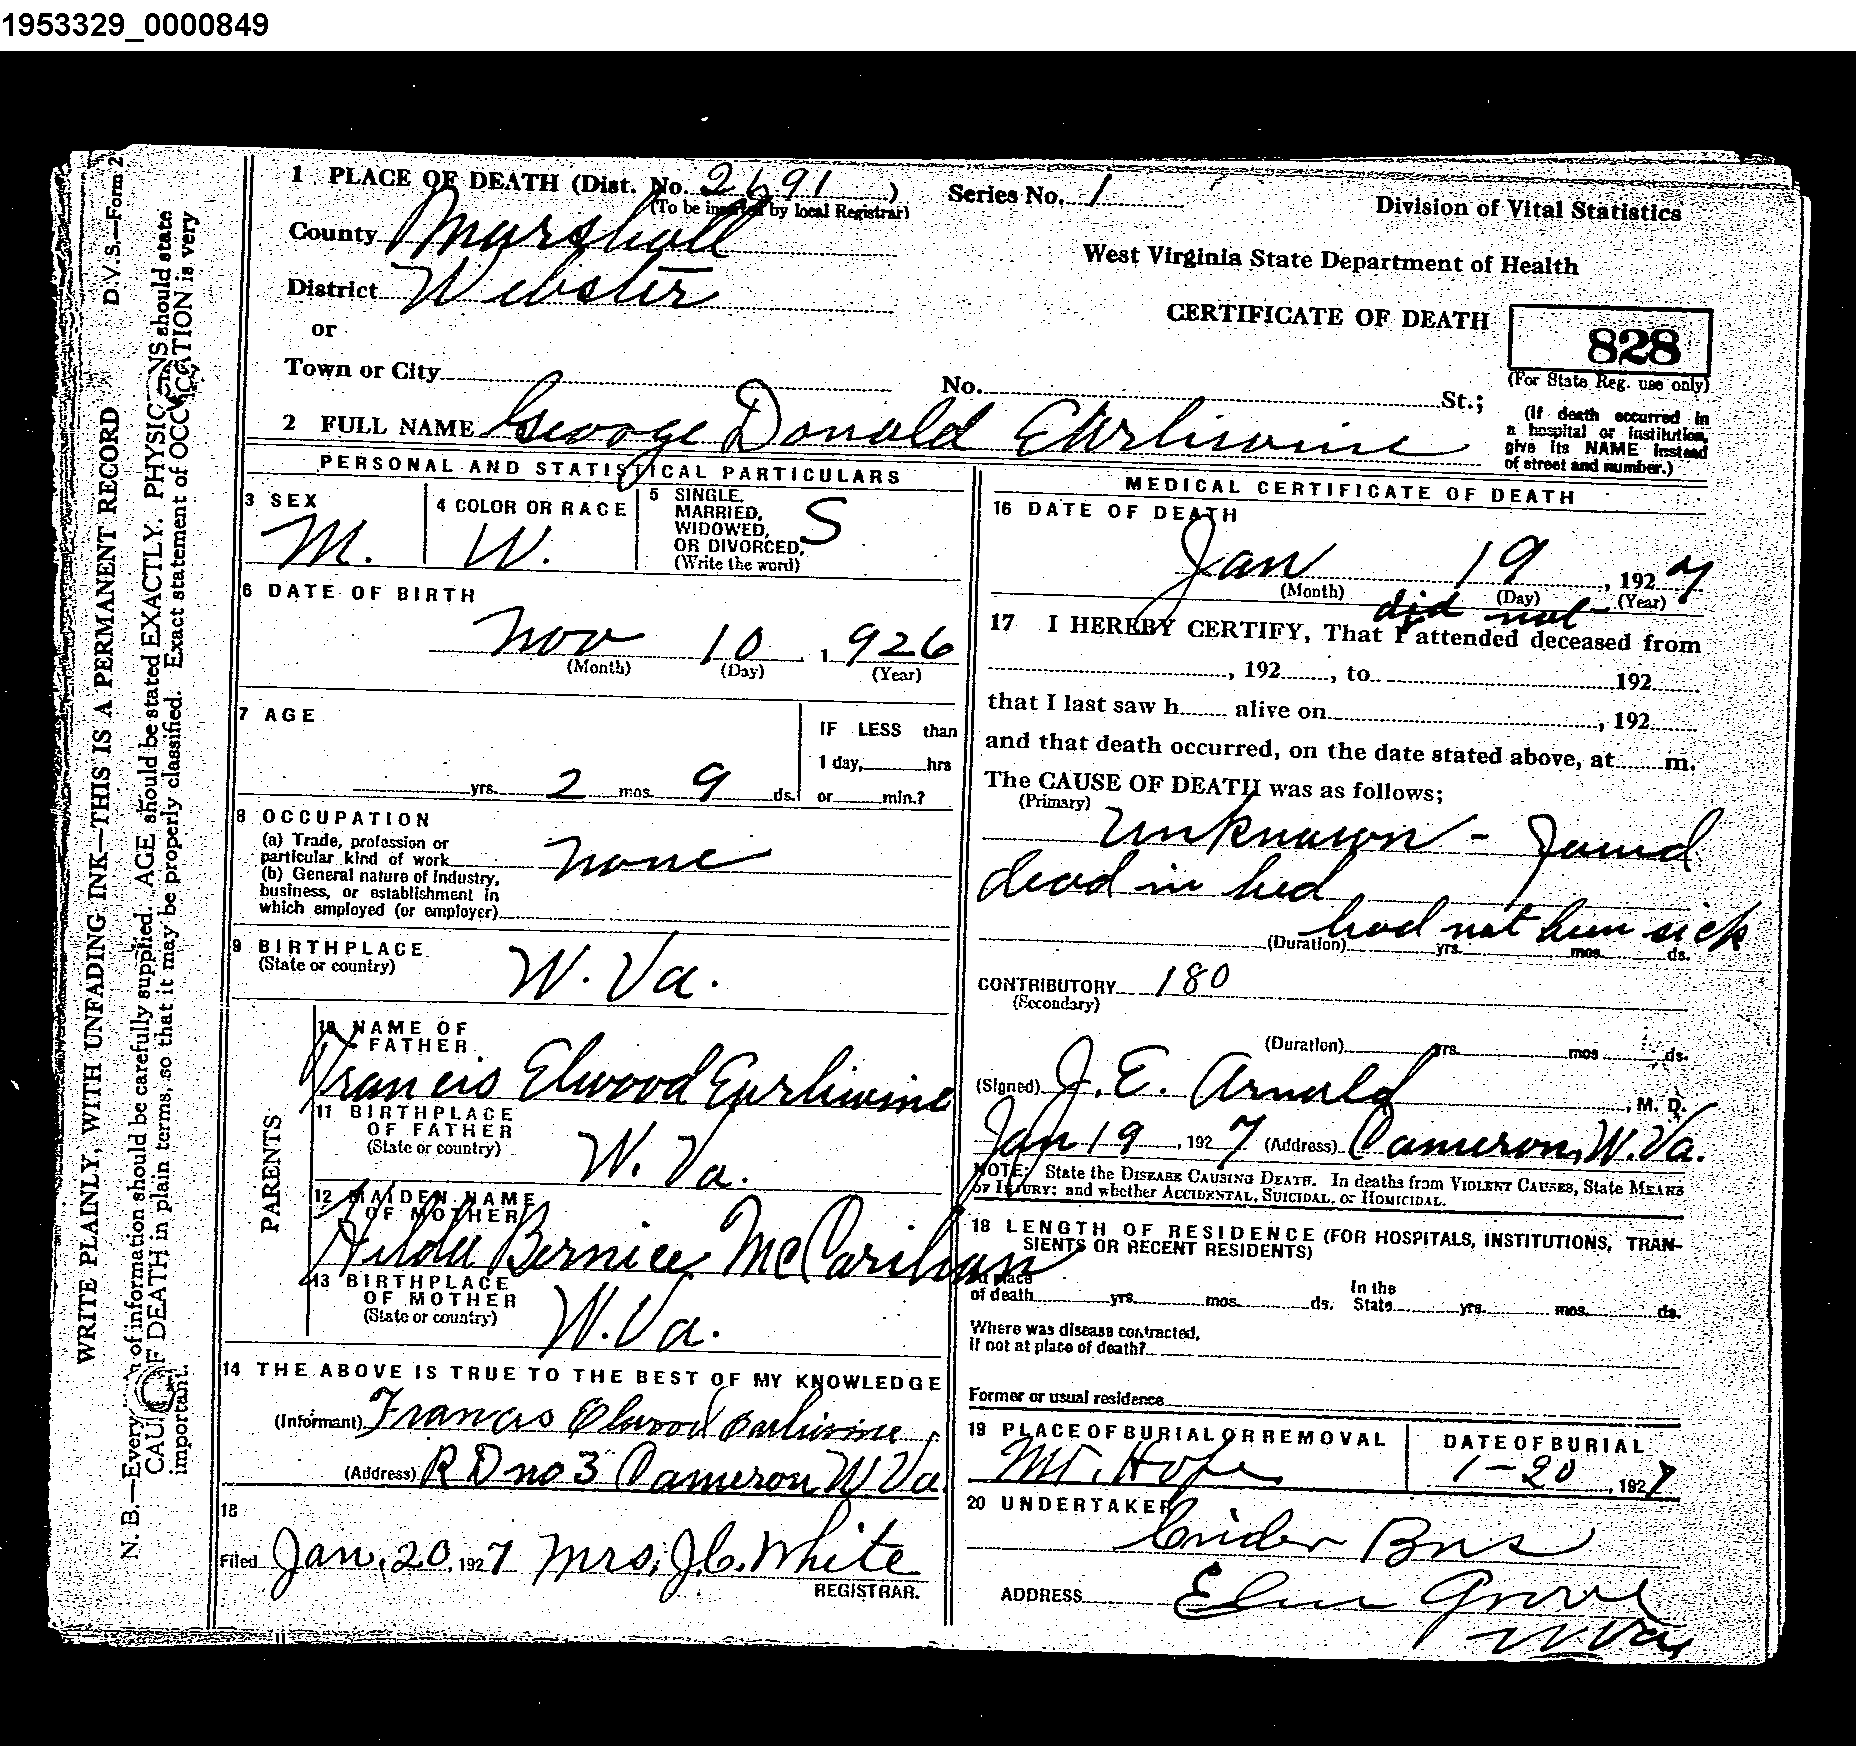 1953329_0000849
D.V.S.—Form 2
WRITE PLAINLY, WITH UNFADING INK—THIS IS A PERMANENT RECORD
N. B.—Every of information should be carefully supplied. AGE should be stated EXACTLY. PHYSIC NS should state
CAU OF DEATH in plain terms, so that it may be properly classified. Exact statement of OCCUPATION is very
important.
1 PLACE OF DEATH (Dist. No. 2691 ) Series No. 1
(To be inserted by local Registrar)
Division of Vital Statistics
County Marshall
West Virginia State Department of Health
District Webster
or
CERTIFICATE OF DEATH
828
(For State Reg. use only)
Town or City No. St.;
(If death occurred in
a hospital or institution,
give its NAME instead
of street and number.)
2 FULL NAME George Donald Earliwine
PERSONAL AND STATISTICAL PARTICULARS
3 SEX
M.
4 COLOR OR RACE
W.
5 SINGLE,
MARRIED,
WIDOWED,
OR DIVORCED,
(Write the word)
S
6 DATE OF BIRTH
Nov 10, 1926
(Month) (Day) (Year)
7 AGE
yrs. 2 mos. 9 ds.
IF LESS than
1 day, hrs
or min.?
8 OCCUPATION
(a) Trade, profession or
particular kind of work none
(b) General nature of Industry,
business, or establishment in
which employed (or employer)
9 BIRTHPLACE
(State or country)
W. Va.
PARENTS
10 NAME OF
FATHER
Francis Elwood Earliwine
11 BIRTHPLACE
OF FATHER
(State or country)
W. Va.
12 MAIDEN NAME
OF MOTHER
Hilda Bernice McCarihan
13 BIRTHPLACE
OF MOTHER
(State or country)
W. Va.
14 THE ABOVE IS TRUE TO THE BEST OF MY KNOWLEDGE
(Informant) Francis Elwood Earliwine
(Address) R D no 3 Cameron W Va.
18
Filed Jan. 20, 1927 Mrs. J.C. White
REGISTRAR.
MEDICAL CERTIFICATE OF DEATH
16 DATE OF DEATH
Jan 19, 1927
(Month) (Day) (Year)
did not
17 I HEREBY CERTIFY, That I attended deceased from
, 192 , to 192
that I last saw h alive on , 192
and that death occurred, on the date stated above, at m.
The CAUSE OF DEATH was as follows;
(Primary)
Unknown - Found
dead in bed
had not been sick
(Duration) yrs. mos. ds.
CONTRIBUTORY 180
(Secondary)
(Duration) yrs. mos ds.
(Signed) J. E. Arnold, M. D.
Jan 19, 1927 (Address) Cameron, W. Va.
NOTE: State the DISEASE CAUSING DEATH. In deaths from VIOLENT CAUSES, State MEANS
OF INJURY: and whether ACCIDENTAL, SUICIDAL, or HOMICIDAL.
18 LENGTH OF RESIDENCE (FOR HOSPITALS, INSTITUTIONS, TRAN-
SIENTS OR RECENT RESIDENTS)
At place
of death yrs. mos. ds. In the
State yrs. mos. ds.
Where was disease contracted,
if not at place of death?
Former or usual residence
19 PLACE OF BURIAL OR REMOVAL
Mt. Hope
DATE OF BURIAL
1-20, 1927
20 UNDERTAKER
Bros
ADDRESS Elm Grove
W. Va.